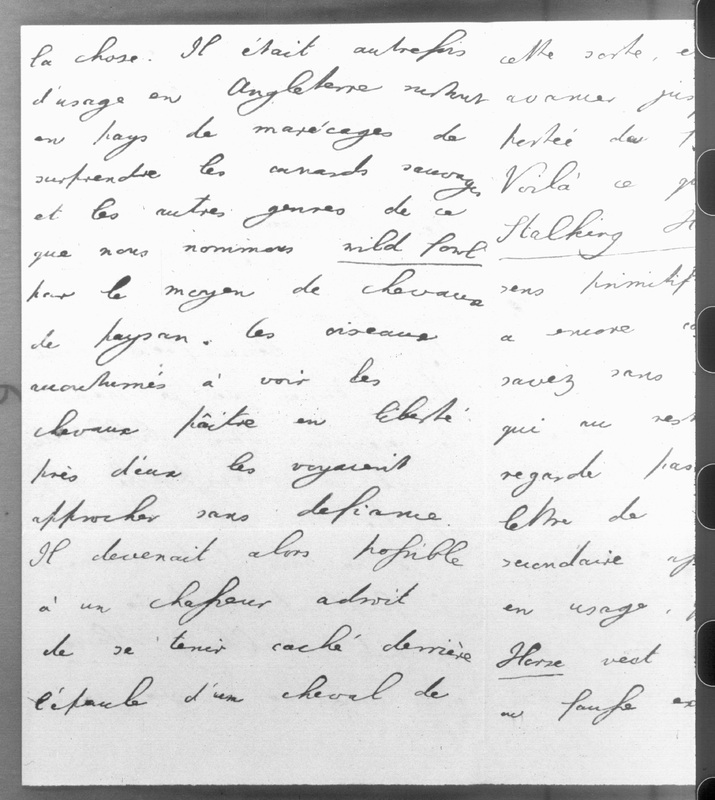 la chose. Il était autrefois
d'usage en Angleterre surtout
en pays de marécages de
surprendre les canards sauvages
et les autres genres de ce
que nous nommons wild fowl
par le moyen de chevaux
de paysan. Les oiseaux
accoutumés à voir les
chevaux paître en liberté
près d'eux les voyaient
approcher sans defiance.
Il devenait alors possible
à un chasseur adroit
de se tenir caché derrière
l'épaule d'un cheval de
cette sorte, e
avancer jus
portée du
Voilà ce qu
Stalking H
sens primitif
a encore
savez sans
qui au rest
regarde pas
lettre de
secondaire ap
en usage,
Horse veut
ou fausse ex